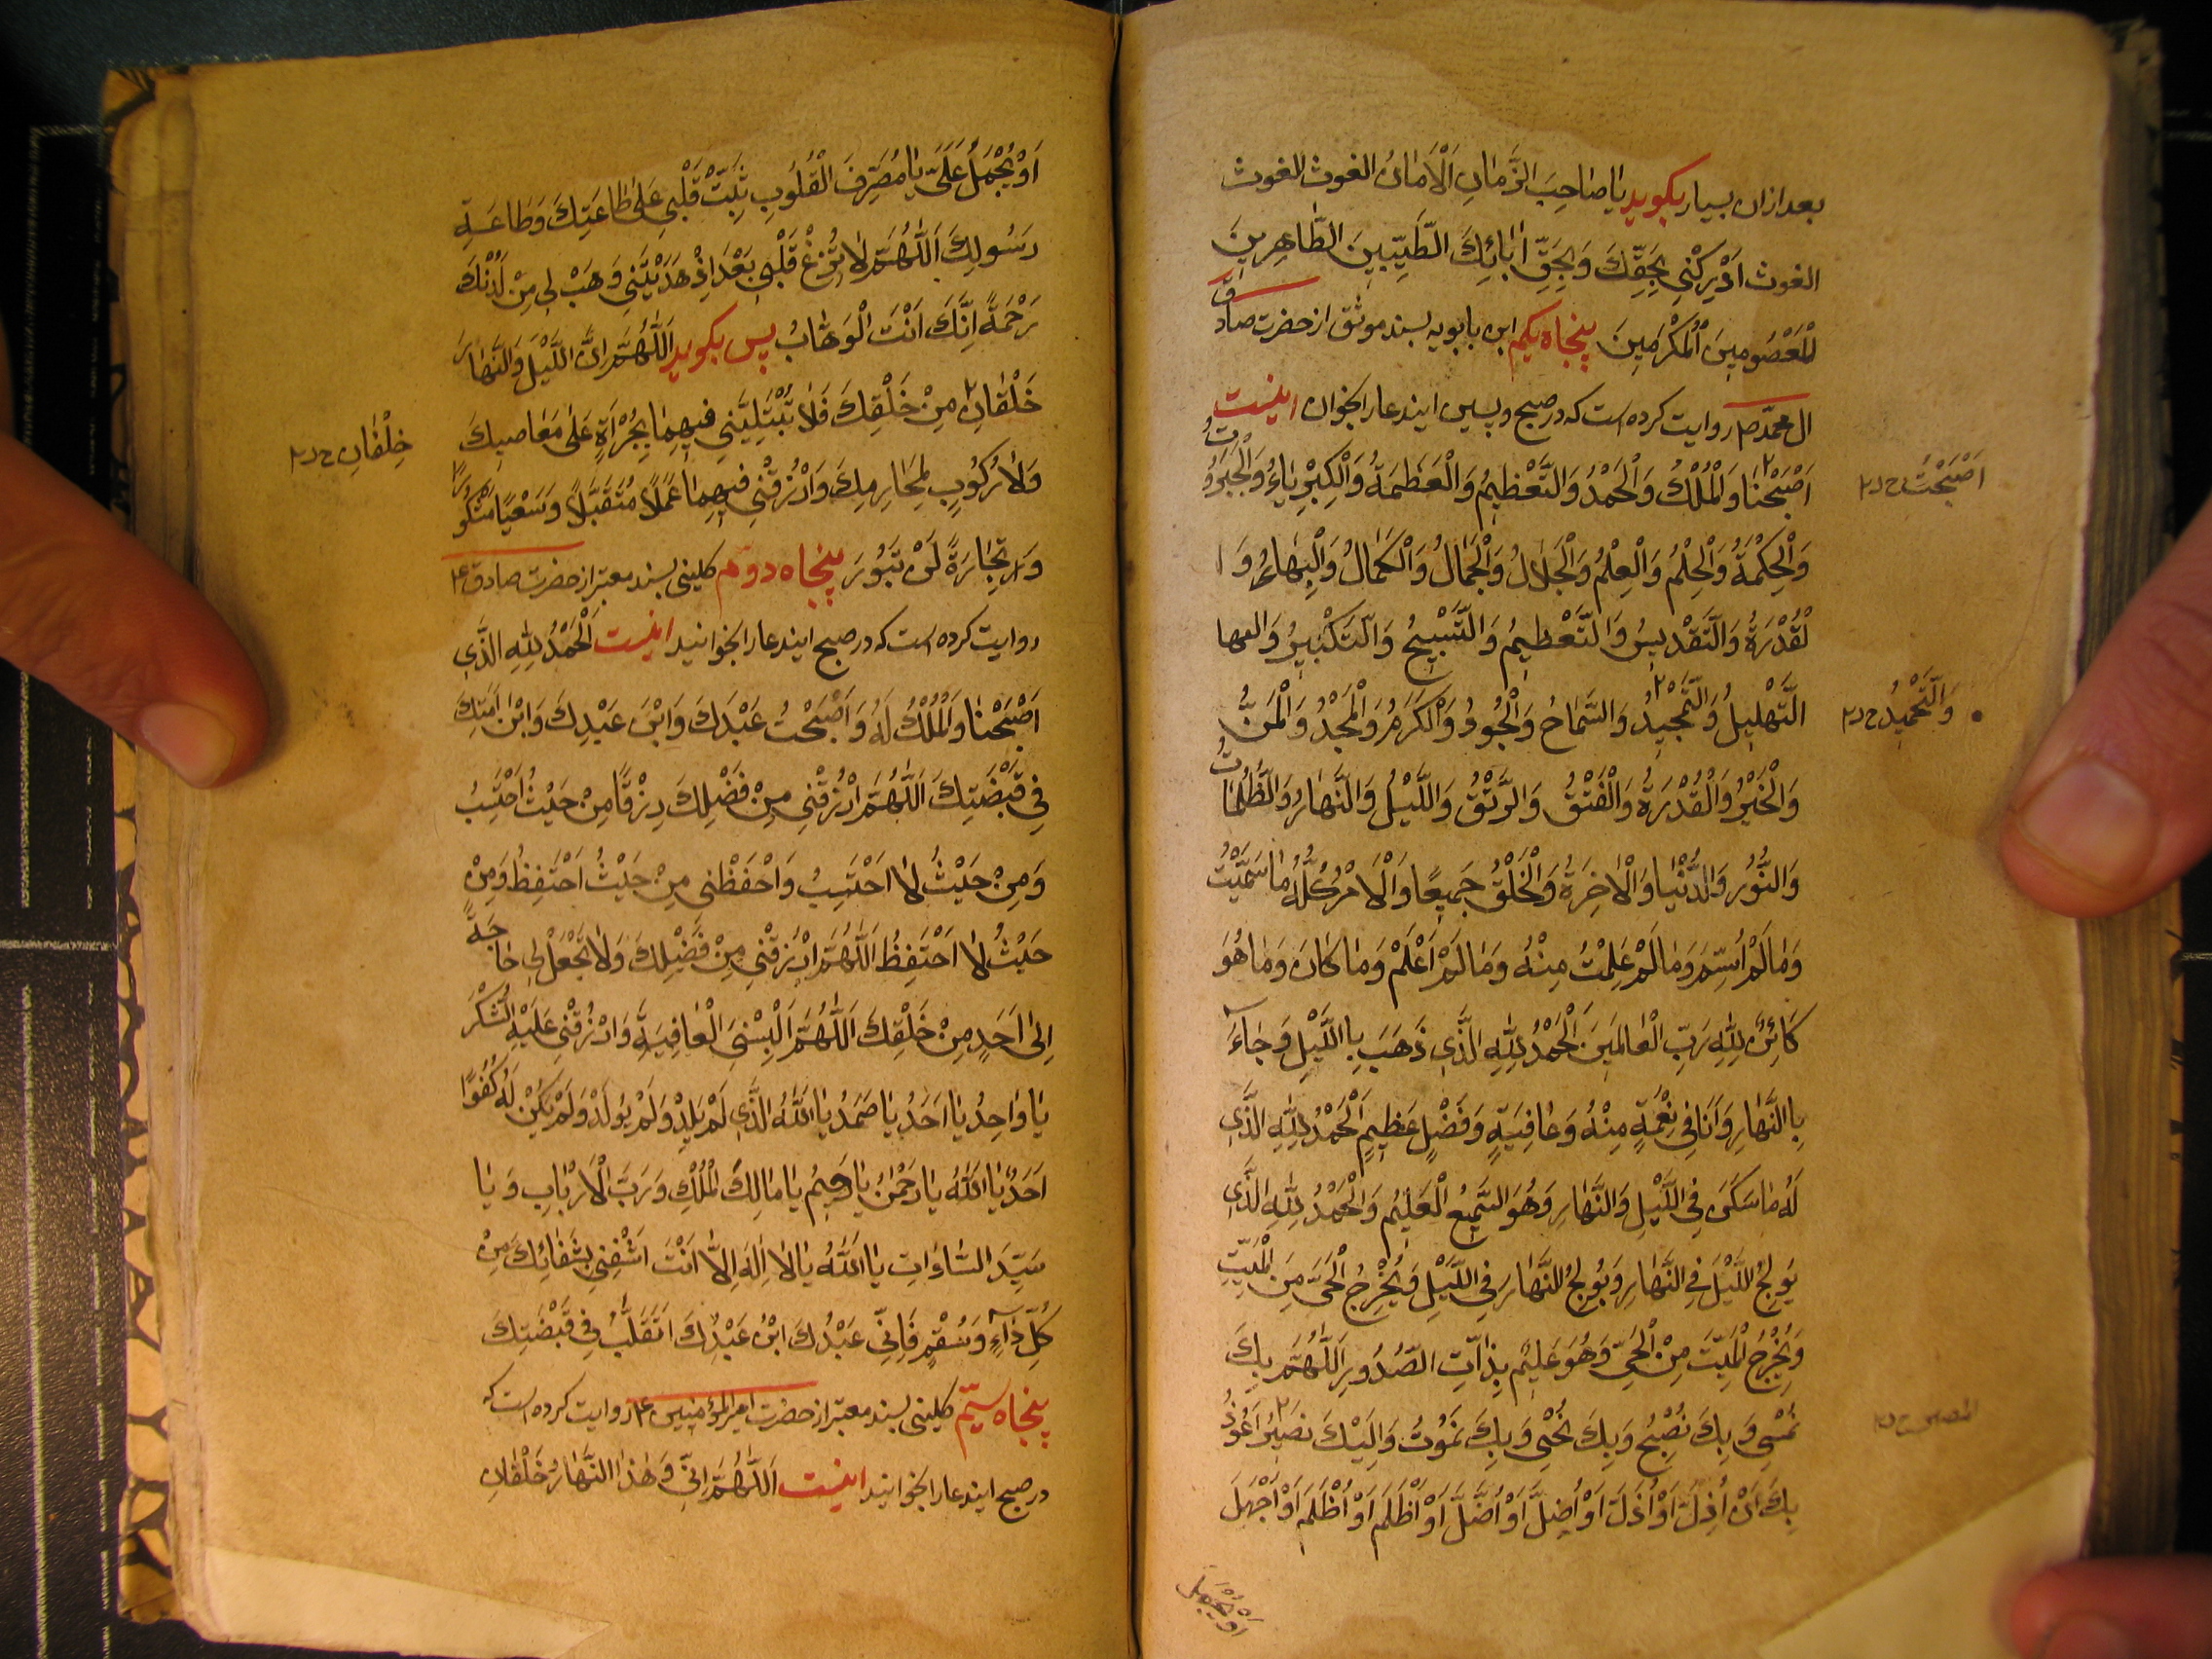 بعد ازان بسیار بکوید یا صٰاحِبَ الزَّمٰانِ اَلْاَمٰانُ الغوث الغوث
الغوث اَدْرِکْنِي بِحَقِّكَ وَ بِحَقِّ اٰبٰائِكَ الطَّيِّبِينَ الطّٰاهِرِينَ
الْمَعْصُومِينَ الْمُكْرَمِينَ پنجاه یکم ابن بابویه بسند موثق از حضرت صادق
ال محمّد ص روایت کرده است که در صبح و پسین ایندعا را بخوان اینست
اَصْبَحْنَا وَالْمُلْكُ وَالْحَمْدُ وَالتَّعْظِيمُ وَالْعَظَمَةُ وَالْكِبْرِيٰاءُ وَالْجَبَرُوتُ
اَصْبَحْتُ ح د ۲
وَالْحِكْمَةُ وَالْحِلْمُ وَالْعِلْمُ وَالْجَلٰالُ وَالْجَمٰالُ وَالْكَمٰالُ وَالْبَهٰاءُ وَ ا
لْقُدْرَةُ وَالتَّقْدِيسُ وَالتَّعْظِيمُ وَالتَّسْبِيحُ وَالتَّكْبِيرُ وَ
التَّهْلِيلُ وَالتَّمْجِيدُ وَالسَّمٰاحُ وَالْجُودُ وَالْكَرَمُ وَالْمَجْدُ وَالْمَنُّ
وَالتَّحْمِيدُ ح د ۲
وَالْخَيْرُ وَالْقُدْرَةُ وَالْفَتْقُ وَالرَّتْقُ وَاللَّيْلُ وَالنَّهٰارُ وَالظُّلُمٰاتُ
وَالنُّورُ وَالدُّنْيٰا وَالْاٰخِرَةُ وَالْخَلْقُ جَمِيعًا وَالْاَمْرُ كُلُّهُ مٰا سَمَّيْتُ
وَمٰا لَمْ اُسَمِّ وَمٰا لَمْ عَلِمْتُ مِنْهُ وَمٰا لَمْ اَعْلَمْ وَمٰا كٰانَ وَمٰا هُوَ
كٰائِنٌ لِلّٰهِ رَبِّ الْعٰالَمِينَ اَلْحَمْدُ لِلّٰهِ الَّذِي ذَهَبَ بِاللَّيْلِ وَجٰآءَ
بِالنَّهٰارِ وَاَنَا فِي نِعْمَةٍ مِنْهُ وَعٰافِيَةٍ وَفَضْلٍ عَظِيمٍ اَلْحَمْدُ لِلّٰهِ الَّذِي
لَهُ مٰا سَكَنَ فِي اللَّيْلِ وَالنَّهٰارِ وَهُوَ السَّمِيعُ الْعَلِيمُ وَالْحَمْدُ لِلّٰهِ الَّذِي
يُولِجُ اللَّيْلَ فِي النَّهٰارِ وَيُولِجُ النَّهٰارَ فِي اللَّيْلِ وَيُخْرِجُ الْحَيَّ مِنَ الْمَيِّتِ
وَيُخْرِجُ الْمَيِّتَ مِنَ الْحَيِّ وَهُوَ عَلِيمٌ بِذٰاتِ الصُّدُورِ اَللّٰهُمَّ بِكَ
نُمْسِي وَبِكَ نُصْبِحُ وَبِكَ نُحْيٰي وَبِكَ نَمُوتُ وَاِلَيْكَ نَصِيرُ اَعُوذُ
بِكَ اَنْ اُذِلَّ اَوْ اُذَلَّ اَوْ اُضِلَّ اَوْ اُضَلَّ اَوْ اَظْلِمَ اَوْ اُظْلَمَ اَوْ اَجْهَلَ
اَوْ يُجْهَلَ
اَوْ يُجْهَلَ عَلَيَّ يٰا مُصَرِّفَ الْقُلُوبِ ثَبِّتْ قَلْبِي عَلىٰ طٰاعَتِكَ وَطٰاعَةِ
رَسُولِكَ اَللّٰهُمَّ لٰا تُزِغْ قَلْبِي بَعْدَ اِذْ هَدَيْتَنِي وَهَبْ لِي مِنْ لَدُنْكَ
رَحْمَةً اِنَّكَ اَنْتَ الْوَهّٰابُ پس بکوید اَللّٰهُمَّ اِنَّ اللَّيْلَ وَالنَّهٰارَ
خَلْقٰانِ مِنْ خَلْقِكَ فَلٰا تَبْتَلِيَنِّي فِيهِمٰا بِجُرْأَةٍ عَلىٰ مَعٰاصِيكَ
خِلْقٰانِ ح د ۲
وَلٰا رُكُوبٍ لِمَحٰارِمِكَ وَارْزُقْنِي فِيهِمٰا عَمَلًا مُتَقَبَّلًا وَسَعْيًا مَشْكُورًا
وَ تِجٰارَةً لَنْ تَبُورَ پنجاه دوم کلینی بسند معتبر از حضرت صادق ع
روایت کرده است که در صبح ایندعا را بخوانید اینست اَلْحَمْدُ لِلّٰهِ الَّذِي
اَصْبَحْنٰا وَالْمُلْكُ لَهُ وَاَصْبَحْتُ عَبْدَكَ وَابْنَ عَبْدِكَ وَابْنَ اَمَتِكَ
فِي قَبْضَتِكَ اَللّٰهُمَّ ارْزُقْنِي مِنْ فَضْلِكَ رِزْقًا مِنْ حَيْثُ اَحْتَسِبُ
وَمِنْ حَيْثُ لٰا اَحْتَسِبُ وَاحْفَظْنِي مِنْ حَيْثُ اَحْتَفِظُ وَمِنْ
حَيْثُ لٰا اَحْتَفِظُ اَللّٰهُمَّ ارْزُقْنِي مِنْ فَضْلِكَ وَلٰا تَجْعَلْ لِي حٰاجَةً
اِلىٰ اَحَدٍ مِنْ خَلْقِكَ اَللّٰهُمَّ اَلْبِسْنِي الْعٰافِيَةَ وَارْزُقْنِي عَلَيْهِ الشُّكْرَ
يٰا وٰاحِدُ يٰا اَحَدُ يٰا صَمَدُ يٰا اَللّٰهُ الَّذِي لَمْ يَلِدْ وَلَمْ يُولَدْ وَلَمْ يَكُنْ لَهُ كُفُوًا
اَحَدٌ يٰا اَللّٰهُ يٰا رَحْمٰنُ يٰا رَحِيمُ يٰا مٰالِكَ الْمُلْكِ وَرَبَّ الْاَرْبٰابِ وَيٰا
سَيِّدَ السّٰادٰاتِ يٰا اَللّٰهُ يٰا لٰا اِلٰهَ اِلّٰا اَنْتَ اشْفِنِي بِشِفٰائِكَ مِنْ
كُلِّ دٰآءٍ وَسُقْمٍ فَاِنِّي عَبْدُكَ ابْنُ عَبْدِكَ اَتَقَلَّبُ فِي قَبْضَتِكَ
پنجاه سیّم کلینی بسند معتبر از حضرت امیر المؤمنین ع روایت کرده است که
در صبح ایندعا را بخوانید اینست اَللّٰهُمَّ اِنِّي وَهٰذَا النَّهٰارُ خَلْقٰانِ